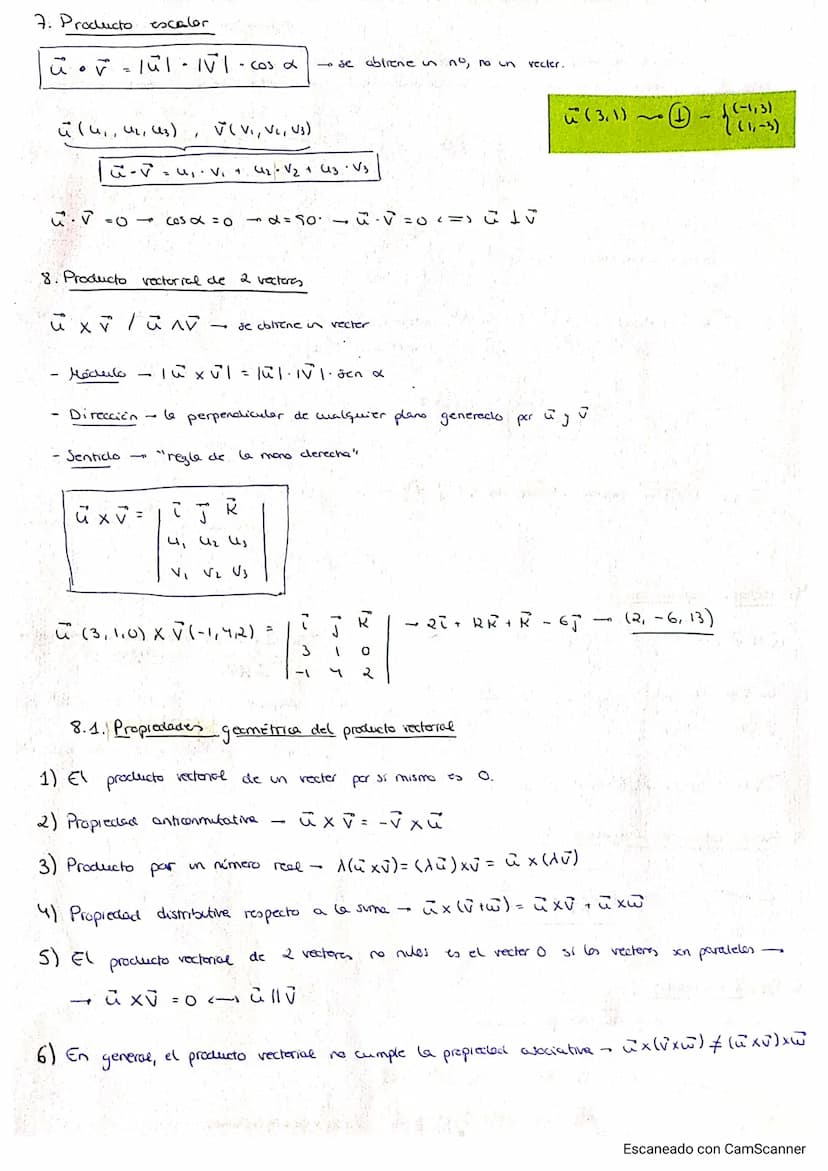 7. Producto escalar
u⃗ • v⃗ = |u⃗| · |v⃗| · cos α → se obtiene un nº, no un vector.
u⃗ (3,1) ⤳ ⊥ – { (-1,3)
(1,-3)
u⃗ (u₁, u₂, u₃) , v⃗ (v₁, v₂, v₃)
u⃗ · v⃗ = u₁ · v₁ + u₂ · v₂ + u₃ · v₃
u⃗ · v⃗ = 0 → cos α = 0 → α = 90° → u⃗ · v⃗ = 0 <=> u⃗ ⊥ v⃗
8. Producto vectorial de 2 vectores
u⃗ x v⃗ / u⃗ ∧ v⃗ → se obtiene un vector
- Módulo → |u⃗ x v⃗| = |u⃗| · |v⃗| · sen α
- Dirección → la perpendicular de cualquier plano generado por u⃗ y v⃗
- Sentido → "regla de la mano derecha"
u⃗ x v⃗ = | i⃗ j⃗ k⃗ |
u₁ u₂ u₃
v₁ v₂ v₃
u⃗ (3,1,0) x v⃗ (-1,4,2) = | i⃗ j⃗ k⃗ | → 2i⃗ + 12k⃗ + k⃗ - 6j⃗ → (2, -6, 13)
3 1 0
-1 4 2
8.1. Propiedades geométrica del producto vectorial
1) El producto vectorial de un vector por sí mismo es 0.
2) Propiedad anticonmutativa → u⃗ x v⃗ = -v⃗ x u⃗
3) Producto por un número real → λ(u⃗ x v⃗) = (λu⃗) x v⃗ = u⃗ x (λv⃗)
4) Propiedad distributiva respecto a la suma → u⃗ x (v⃗ + w⃗) = u⃗ x v⃗ + u⃗ x w⃗
5) El producto vectorial de 2 vectores no nulos es el vector 0 si los vectores son paralelos →
→ u⃗ x v⃗ = 0 <→ u⃗ || v⃗
6) En general, el producto vectorial no cumple la propiedad asociativa → u⃗ x (v⃗ x w⃗) ≠ (u⃗ x v⃗) x w⃗
Escaneado con CamScanner